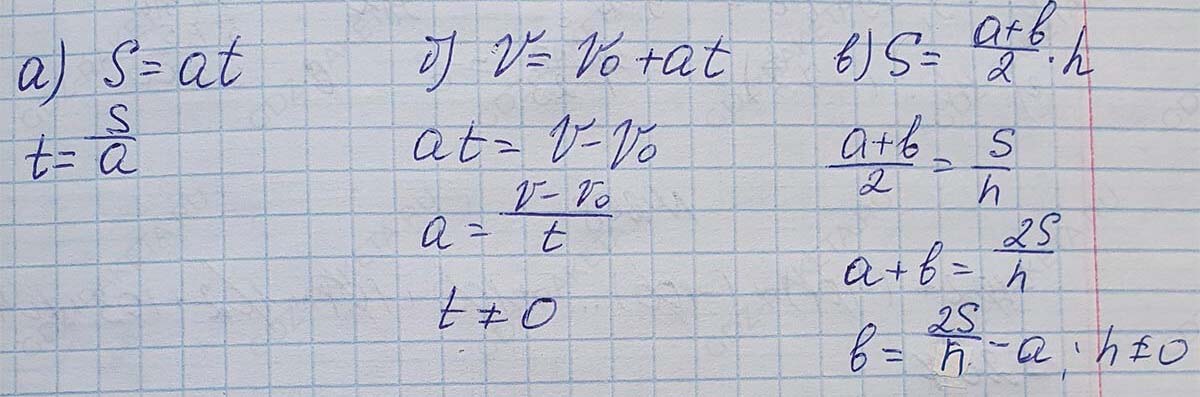 а) S = at
t = s/a
б) v = v₀ + at
at = v - v₀
a = (v - v₀)/t
t ≠ 0
в) S = (a+b)/2 · h
(a+b)/2 = S/h
a + b = 2S/h
b = 2S/h - a; h ≠ 0